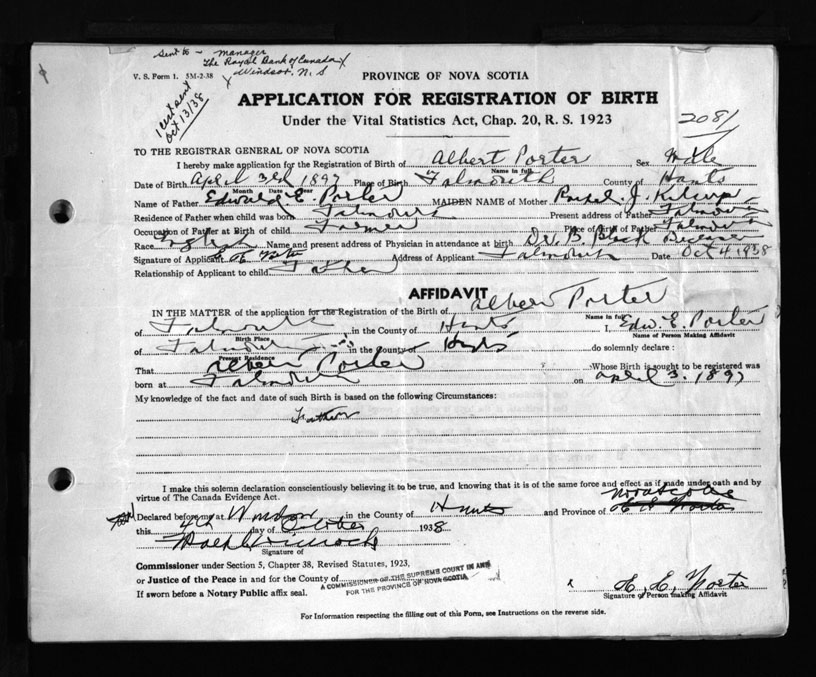 Sent to - Manager
The Royal Bank of Canada
Windsor, N. S
V. S. Form 1. 5M-2-38
1 cert sent
Oct 13/38
PROVINCE OF NOVA SCOTIA
APPLICATION FOR REGISTRATION OF BIRTH
Under the Vital Statistics Act, Chap. 20, R. S. 1923
2081
TO THE REGISTRAR GENERAL OF NOVA SCOTIA
I hereby make application for the Registration of Birth of Albert Porter Sex Male
Name in full
Date of Birth April 3rd 1897 Place of Birth Falmouth County of Hants
Month Date Year
Name of Father Edward E. Porter MAIDEN NAME of Mother J.
Residence of Father when child was born Falmouth Present address of Father Falmouth
Occupation of Father at Birth of child Farmer Place of Birth of Father Falmouth
Race English Name and present address of Physician in attendance at birth Dr. B. Black Deceased
Signature of Applicant Address of Applicant Falmouth Date Oct 4 1938
Relationship of Applicant to child Father
AFFIDAVIT
IN THE MATTER of the application for the Registration of the Birth of Albert Porter
Name in full
of Falmouth in the County of Hants I, Edw. E. Porter
Birth Place Name of Person Making Affidavit
of Falmouth in the County of Hants do solemnly declare:
Present Residence
That Albert Porter Whose Birth is sought to be registered was
born at Falmouth on April 3 1897
My knowledge of the fact and date of such Birth is based on the following Circumstances:
Father
I make this solemn declaration conscientiously believing it to be true, and knowing that it is of the same force and effect as if made under oath and by
virtue of The Canada Evidence Act.
Nova Scotia
Declared before me at Windsor in the County of Hants and Province of
this 4th day of October 1938
Signature of
Commissioner under Section 5, Chapter 38, Revised Statutes, 1923,
or Justice of the Peace in and for the County of
A COMMISSIONER OF THE SUPREME COURT IN AND
FOR THE PROVINCE OF NOVA SCOTIA
If sworn before a Notary Public affix seal.
x E. E. Porter
Signature of Person making Affidavit
For Information respecting the filling out of this Form, see Instructions on the reverse side.